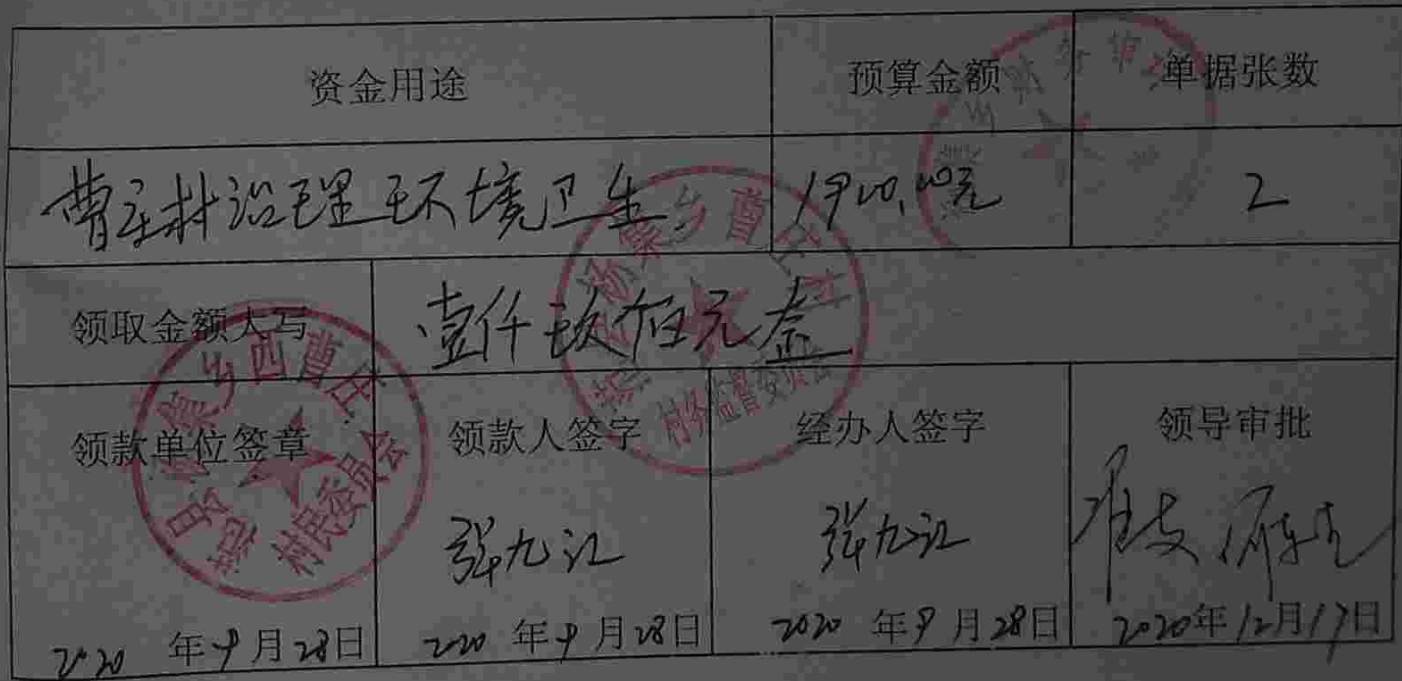 资金用途 预算金额 单据张数
曹庄村治理环境卫生 1900.00元 2
领取金额大写 壹仟玖佰元叁
领款单位签章 领款人签字 经办人签字 领导审批
张九江 张九江 准支
2020年9月28日 2020年9月28日 2020年9月28日 2020年12月17日
范县杨集乡西曹庄
村民委员会
村务监督委员会